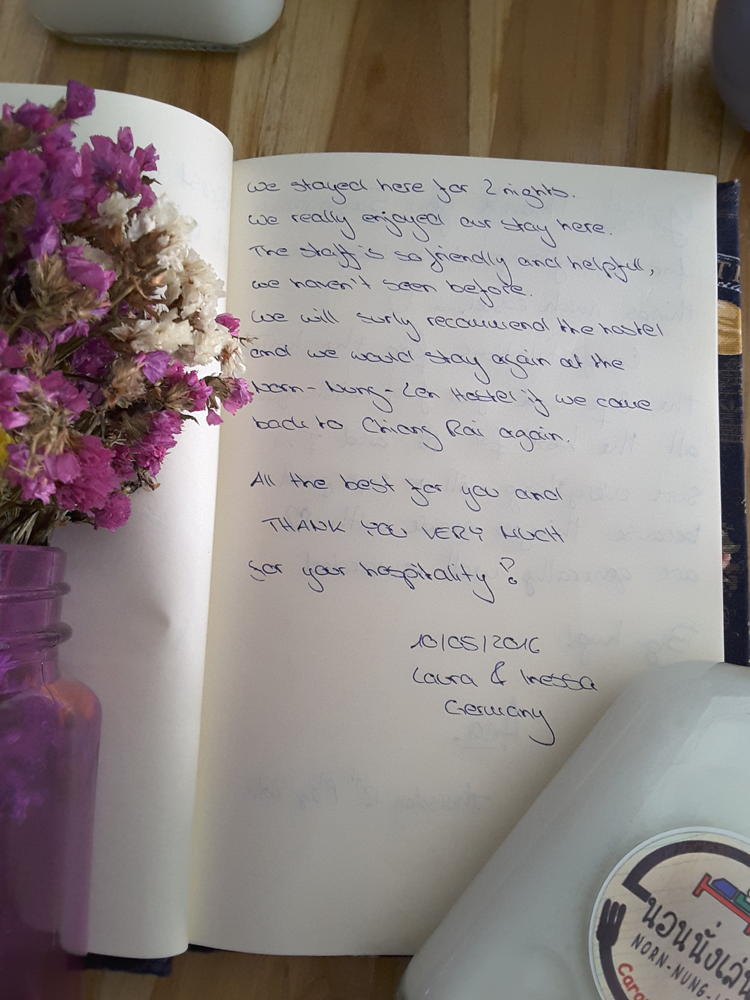 we stayed here for 2 nights.
we really enjoyed our stay here.
The staff is so friendly and helpful,
we haven't seen before.
we will surly recommend the hostel
and we would stay again at the
Norn-Nung-Len Hostel if we come
back to Chiang Rai again.
All the best for you and
THANK YOU VERY MUCH
for your hospitality!
10/05/2016
Laura & Inessa
Germany
นอนนั่งเล่น
NORN-NUNG-